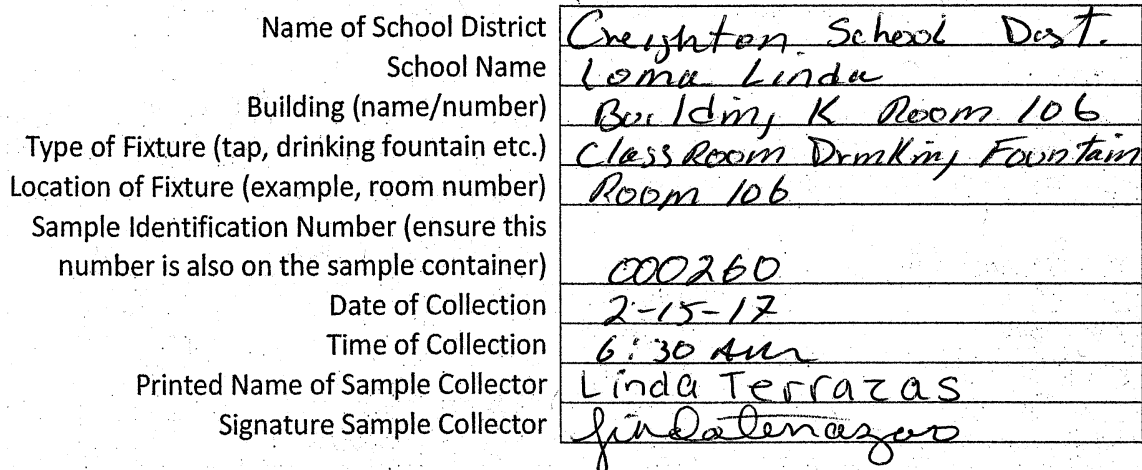 Name of School District Creighton School Dist.
School Name Loma Linda
Building (name/number) Building K Room 106
Type of Fixture (tap, drinking fountain etc.) Class Room Drinking Fountain
Location of Fixture (example, room number) Room 106
Sample Identification Number (ensure this
number is also on the sample container) 000260
Date of Collection 2-15-17
Time of Collection 6:30 AM
Printed Name of Sample Collector Linda Terrazas
Signature Sample Collector Linda Terrazas